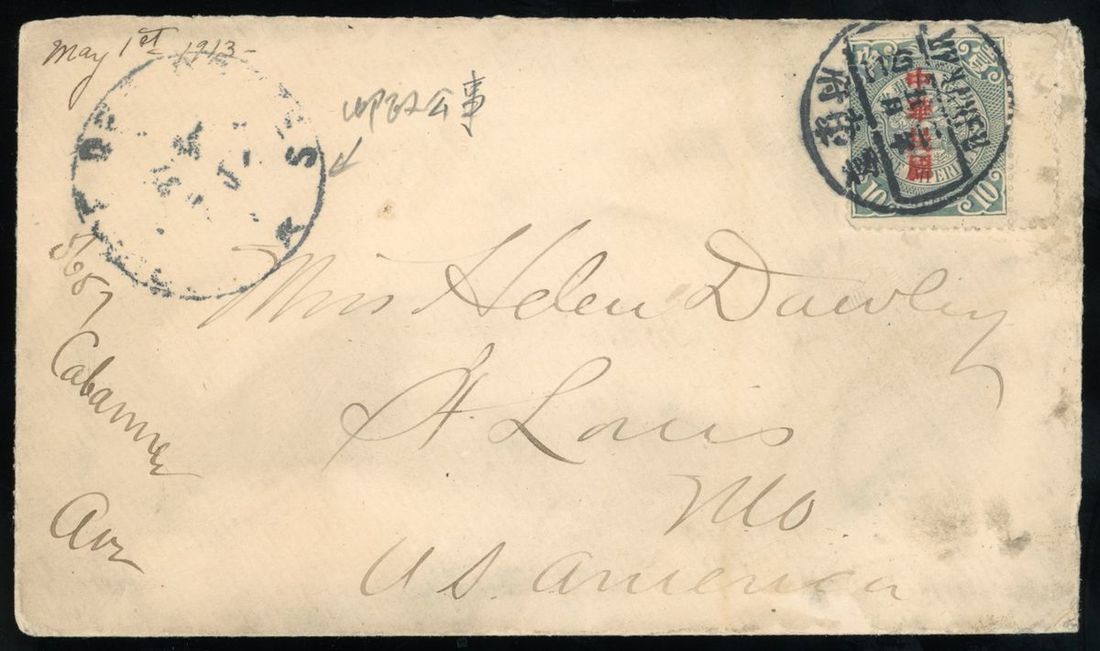 May 1st 1913-
邮政公事
中華民國
10 10
Miss Helen Dawley
St Louis
Mo
U S America
5687
Cabanne
Ave